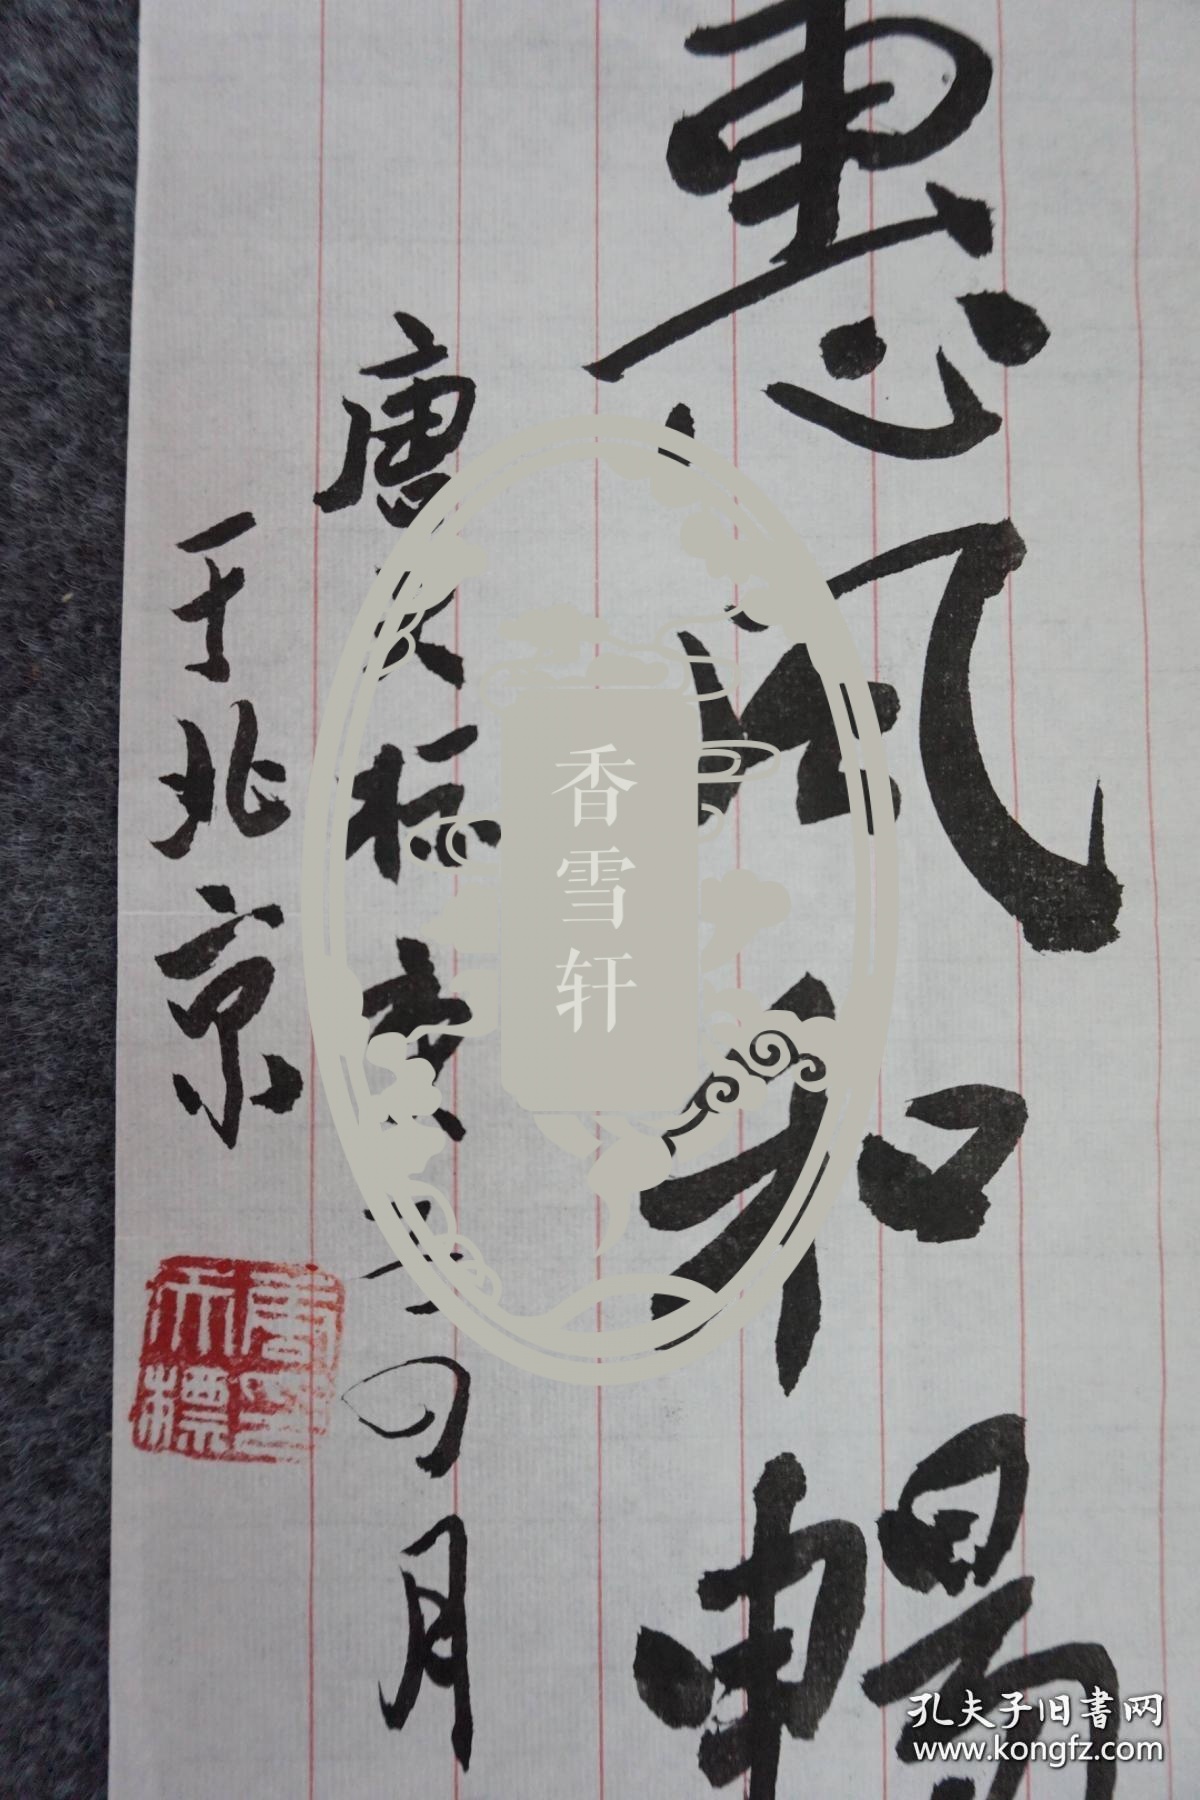 惠風和暢
唐天标 四月
于北京
唐印天標
香雪轩
孔夫子旧书网
www.kongfz.com